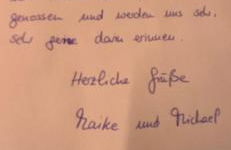 genossen und werden uns sehr,
sehr gerne daran erinnern.
Herzliche Grüße
Maike und Michael